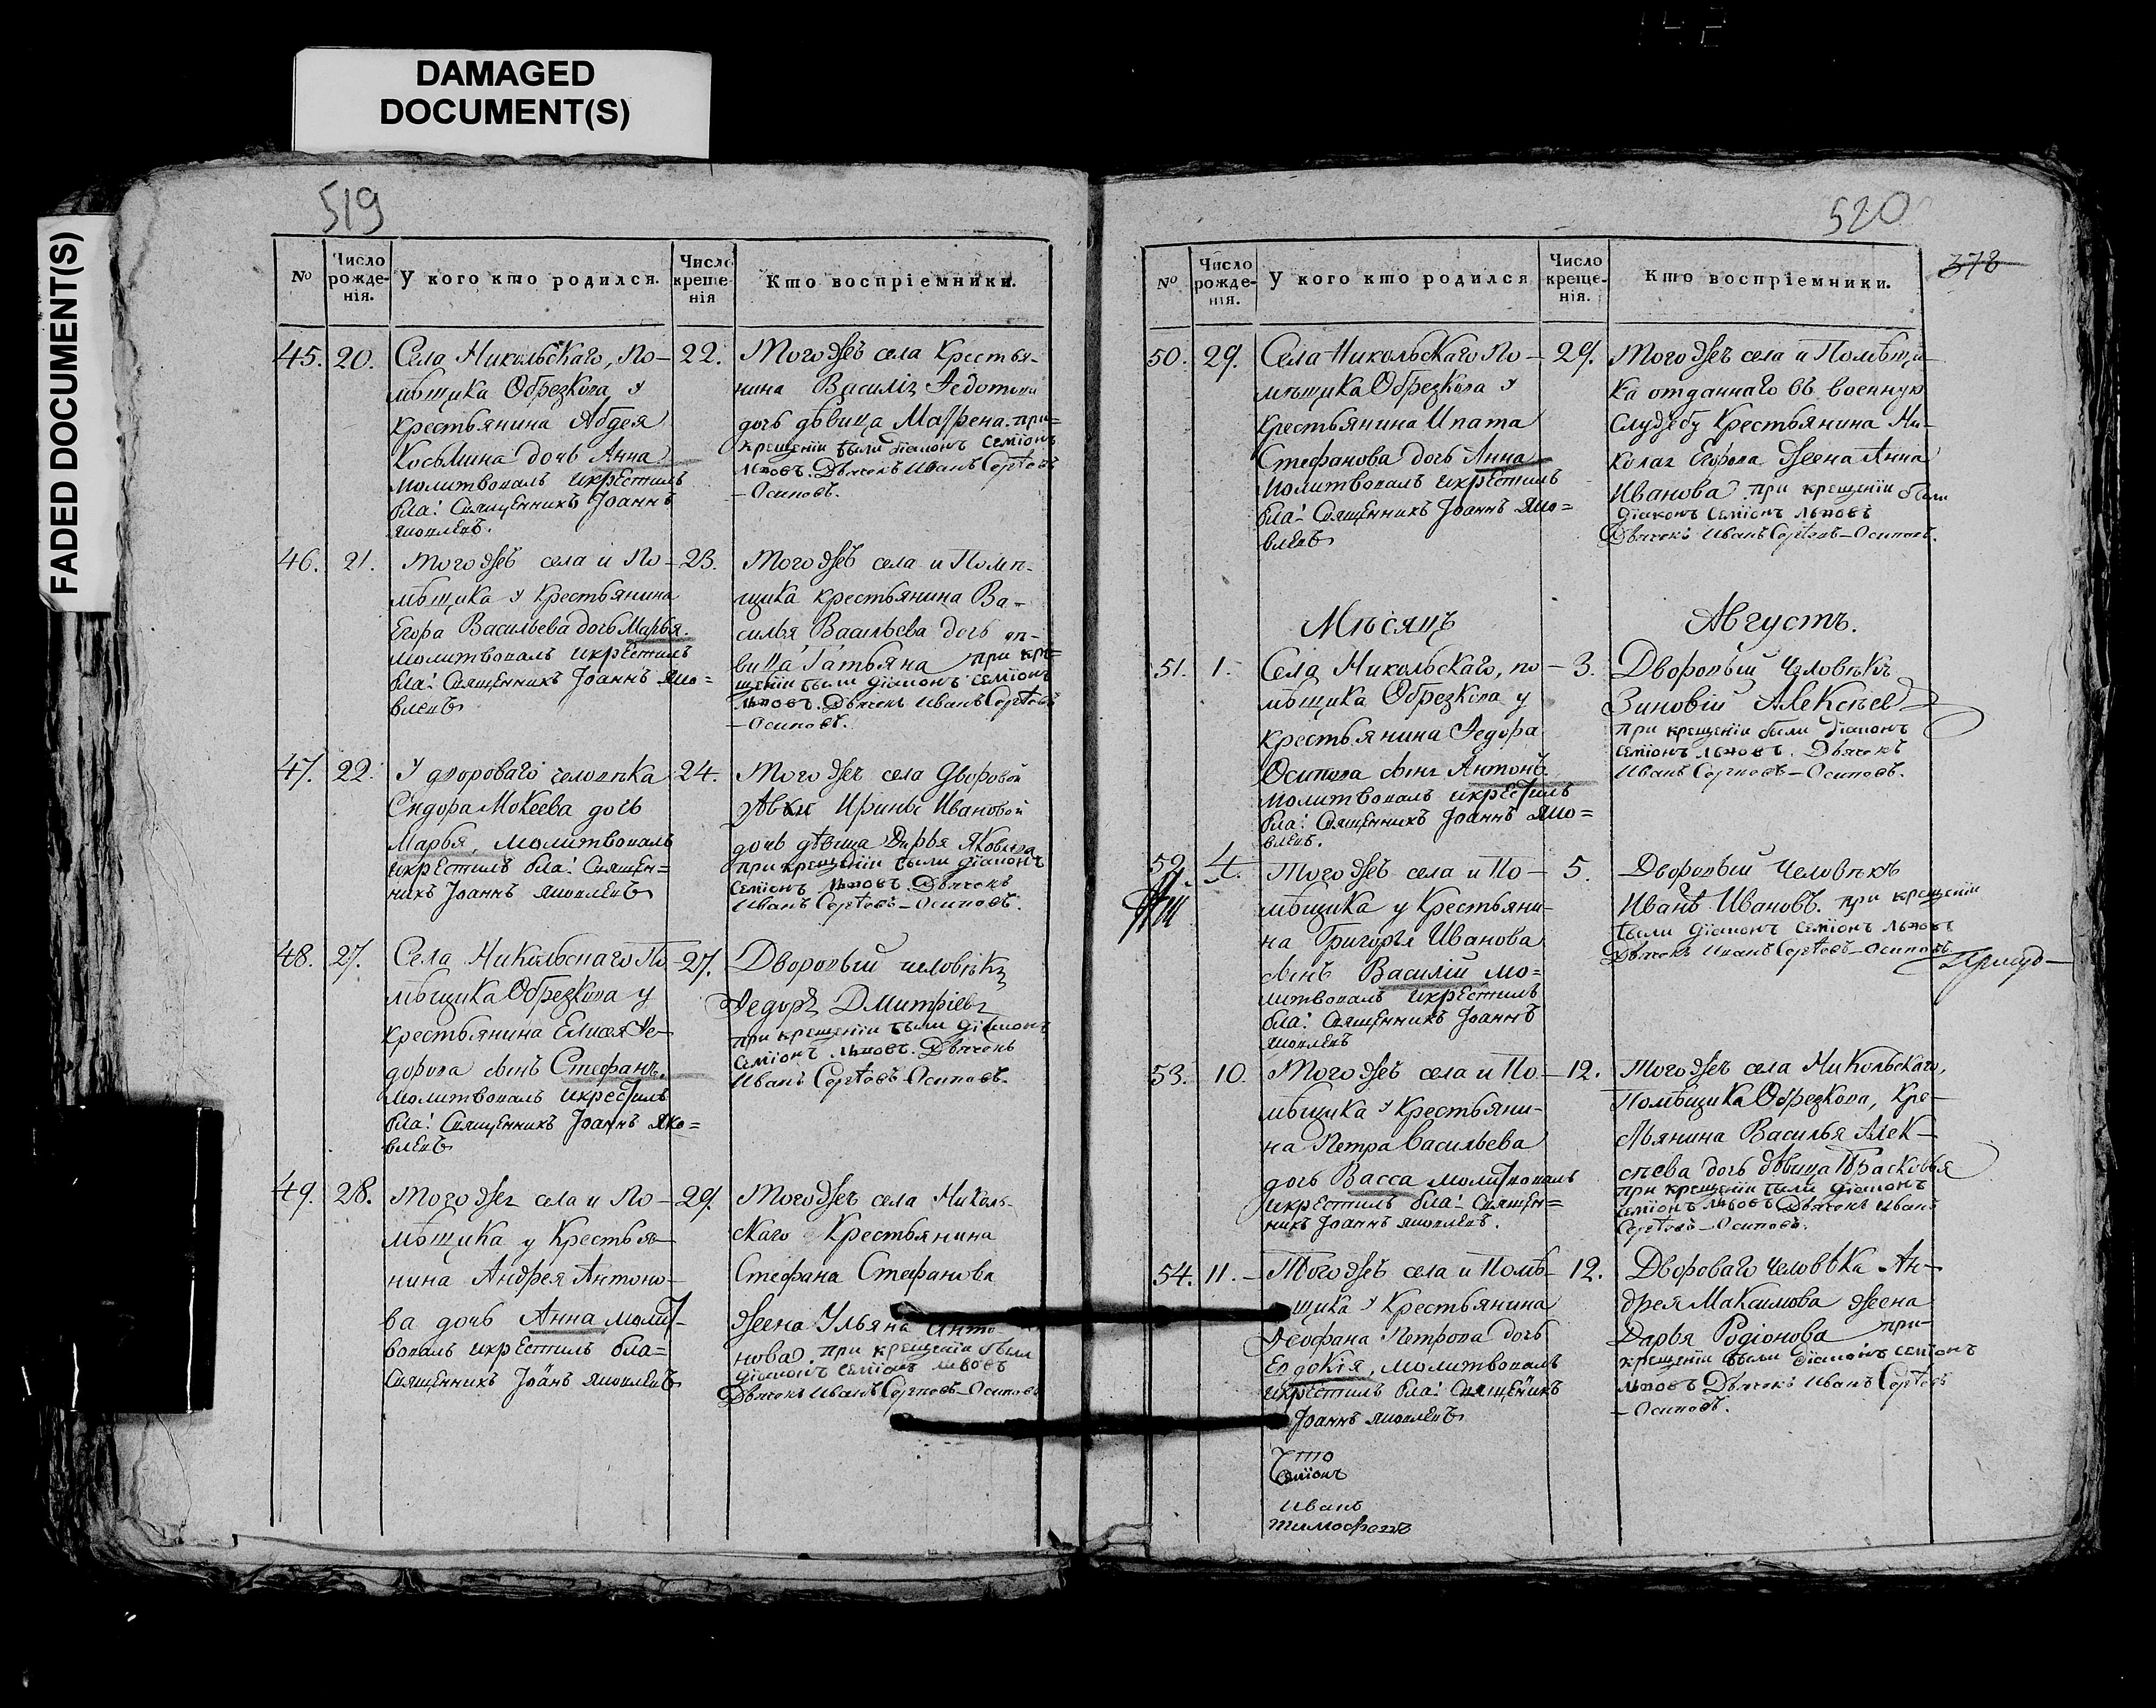 DAMAGED
DOCUMENT(S)
FADED DOCUMENT(S)
519
№
Число рожде-нія.
У кого кто родился.
Число креще-нія
Кто воспріемники.
45. 20.
Села Никольскаго, По-
мѣщика Обрезкова у
крестьянина Авдея
Косьмина дочь Анна
молитвовалъ икрестилъ
бла: Священникъ Іоаннъ
Яковлевъ.
22.
Тогожъ села Крестья-
нина Василія Федотова
дочь дѣвица Мавѳрена. при=
крещеніи были діаконъ Семіонъ
Львовъ. Дьячекъ Иванъ Сергѣевъ
-Осиповъ.
46. 21.
Тогожъ села и По-
мѣщика у крестьянина
Егора Васильева дочь Марья.
молитвовалъ икрестилъ
бла: Священникъ Іоаннъ Яко=
влевъ
23.
Тогожъ села и Помѣ-
щика крестьянина Ва-
силья Васильева дочь дѣ-
вица Татьяна при кре=
щеніи были діаконъ Семіонъ
Львовъ. Дьячекъ Иванъ Сергѣевъ
-Осиповъ.
47. 22.
У двороваго человѣка
Сидора Мокеева дочь
Марья, молитвовалъ
икрестилъ бла: Священ=
никъ Іоаннъ Яковлевъ
24.
Тогожъ села дворовой
Ирины Ивановой
дочь дѣвица Дарья Яковлева
при крещеніи были діаконъ
Семіонъ Львовъ. Дьячекъ
Иванъ Сергѣевъ-Осиповъ.
48. 27.
Села Никольскаго По
мѣщика Обрезкова у
крестьянина Елисея Ѳе-
дорова сынъ Стефанъ.
молитвовалъ икрестилъ
бла: Священникъ Іоаннъ Яко=
влевъ
27.
Дворовый человѣкъ
Ѳедоръ Дмитріевъ
при крещеніи были діаконъ
Семіонъ Львовъ. Дьячекъ
Иванъ Сергѣевъ-Осиповъ.
49. 28.
Тогожъ села и По-
мѣщика у Крестья-
нина Андрея Антоно-
ва дочь Анна молит-
вовалъ икрестилъ бла=
Священникъ Іоаннъ Яковлевъ
29.
Тогожъ села Николь-
скаго Крестьянина
Стефана Стефанова
жена Ульяна Анто
нова. при крещеніи были
діаконъ Семіонъ Львовъ
Дьячекъ Иванъ Сергѣевъ-Осиповъ
520
378
№
Число рожде-нія.
У кого кто родился
Число креще-нія.
Кто воспріемники.
50. 29.
Села Никольскаго По-
мѣщика Обрезкова у
крестьянина Ипата
Стефанова дочь Анна
молитвовалъ икрестилъ
бла: Священникъ Іоаннъ Яко=
влевъ
29.
Тогожъ села и Помѣщи-
ка отданнаго въ военную
Службу Крестьянина Ни-
колая Егорова жена Анна
Иванова при крещеніи были
діаконъ Семіонъ Львовъ
Дьячекъ Иванъ Сергѣевъ-Осиповъ.
Мѣсяцъ Августъ.
51. 1.
Села Никольскаго, по-
мѣщика Обрезкова у
крестьянина Ѳедора
Осипова сынъ Антонъ.
молитвовалъ икрестилъ
бла: Священникъ Іоаннъ Яко=
влевъ.
3.
Дворовый Человѣкъ
Зиновій Алексѣев
при крещеніи были діаконъ
Семіонъ Львовъ. Дьячекъ
Иванъ Сергѣевъ-Осиповъ.
52. 4.
Тогожъ села и По-
мѣщика у Крестьяни-
на Григорья Иванова
сынъ Василій мо=
литвовалъ икрестилъ
бла: Священникъ Іоаннъ
Яковлевъ
5.
Дворовый Человѣкъ
Иванъ Ивановъ. при крещеніи
были діаконъ Семіонъ Львовъ
Дьячекъ Иванъ Сергѣевъ-Осиповъ.
53. 10.
Тогожъ села и По-
мѣщика у Крестьяни-
на Петра Васильева
дочь Васса молитвовалъ
икрестилъ бла: Священ=
никъ Іоаннъ Яковлевъ.
12.
Тогожъ села Никольскаго,
Помѣщика Обрезкова, Кре-
стьянина Василья Алек-
сѣева дочь дѣвица Прасковья
при крещеніи были діаконъ
Семіонъ Львовъ Дьячекъ Иванъ
Сергѣевъ-Осиповъ.
54. 11.
Тогожъ села и Помѣ-
щика у Крестьянина
Ѳеофана Петрова дочь
Евдокія, молитвовалъ
икрестилъ бла: Священикъ
Іоаннъ Яковлевъ
12.
Двороваго человѣка Ан-
дрея Максимова жена
Дарья Родіонова при-
крещеніи были діаконъ Семіонъ
Львовъ Дьячекъ Иванъ Сергѣевъ
-Осиповъ.
Что
Семіонъ
Иванъ